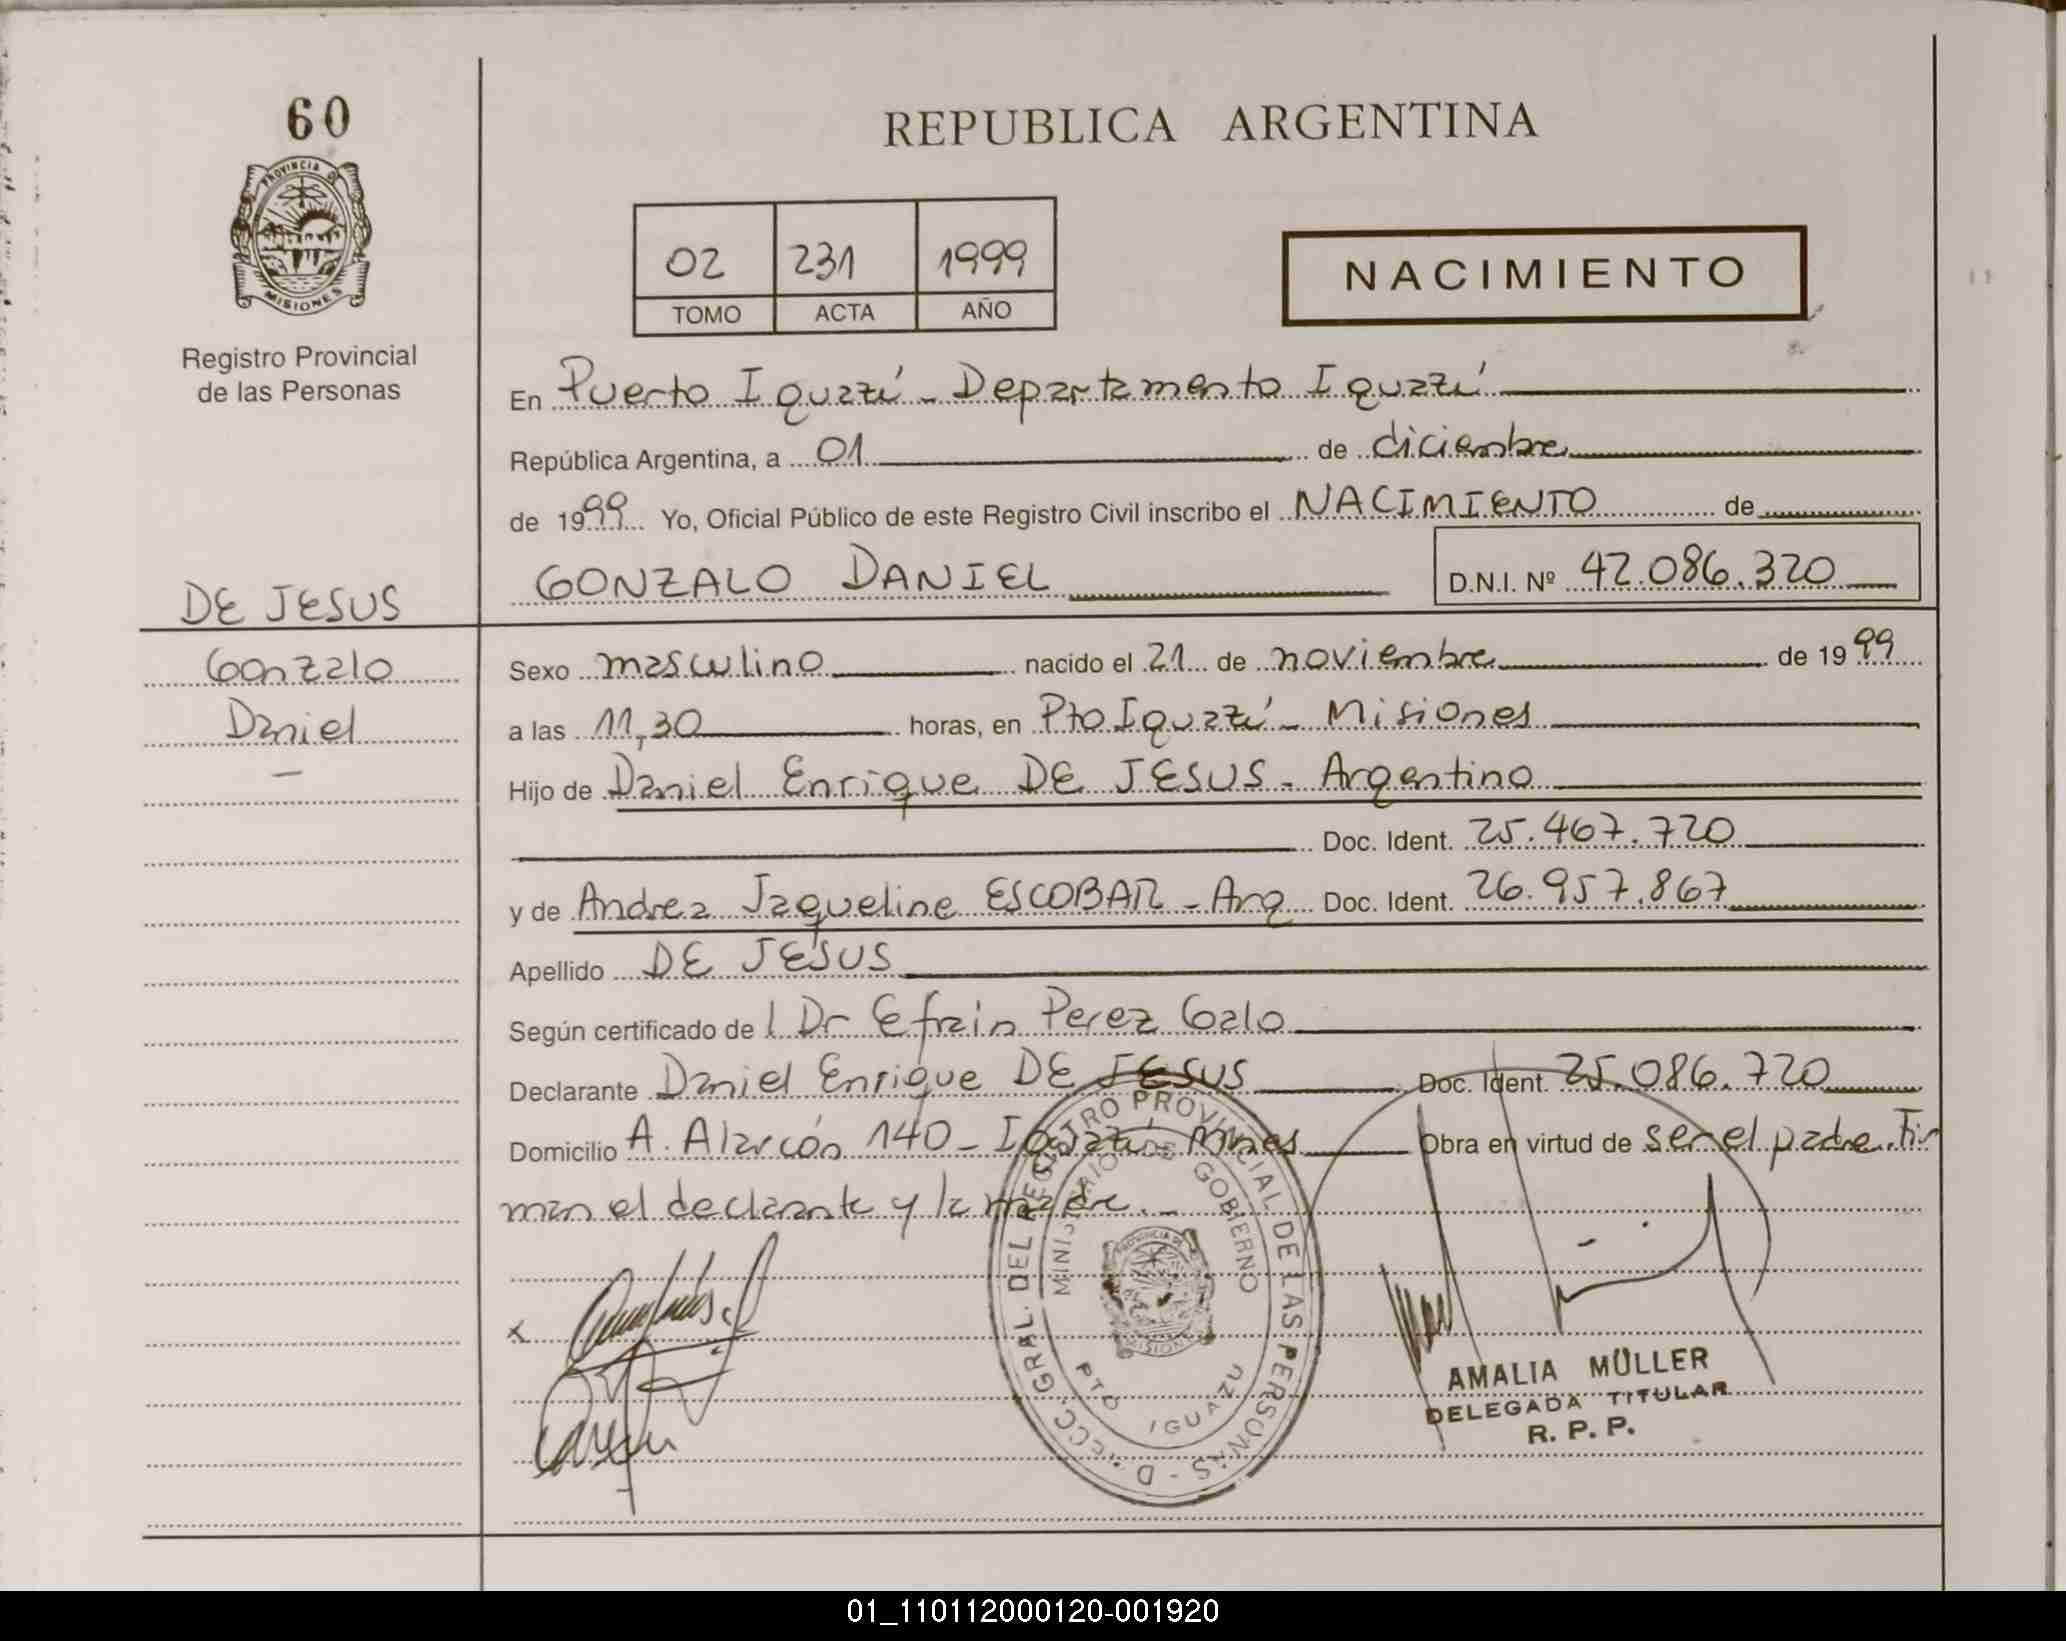 60
PROVINCIA DE
MISIONES
Registro Provincial
de las Personas
DE JESUS
Gonzalo
Daniel
—
REPUBLICA ARGENTINA
02 231 1999
TOMO ACTA AÑO
NACIMIENTO
En Puerto Iguazú - Departamento Iguazú
República Argentina, a 01 de diciembre
de 1999 Yo, Oficial Público de este Registro Civil inscribo el NACIMIENTO de
GONZALO DANIEL D.N.I. Nº 42.086.320
Sexo masculino nacido el 21 de noviembre de 1999
a las 11,30 horas, en Pto Iguazú - Misiones
Hijo de Daniel Enrique DE JESUS - Argentino
Doc. Ident. 25.467.720
y de Andrea Jaqueline ESCOBAR - Arg Doc. Ident. 26.957.867
Apellido DE JESUS
Según certificado de l Dr Efrain Perez Galo
Declarante Daniel Enrique DE JESUS Doc. Ident. 25.086.720
Domicilio A. Alarcón 140 - Iguazú Mnes Obra en virtud de ser el padre. Fir
man el declarante y la madre. -
x
DIRECC. GRAL. DEL REGISTRO PROVINCIAL DE LAS PERSONAS -
MINISTERIO DE GOBIERNO
PROVINCIA DE
MISIONES
PTO IGUAZU
AMALIA MÜLLER
DELEGADA TITULAR
R. P. P.
01_110112000120-001920